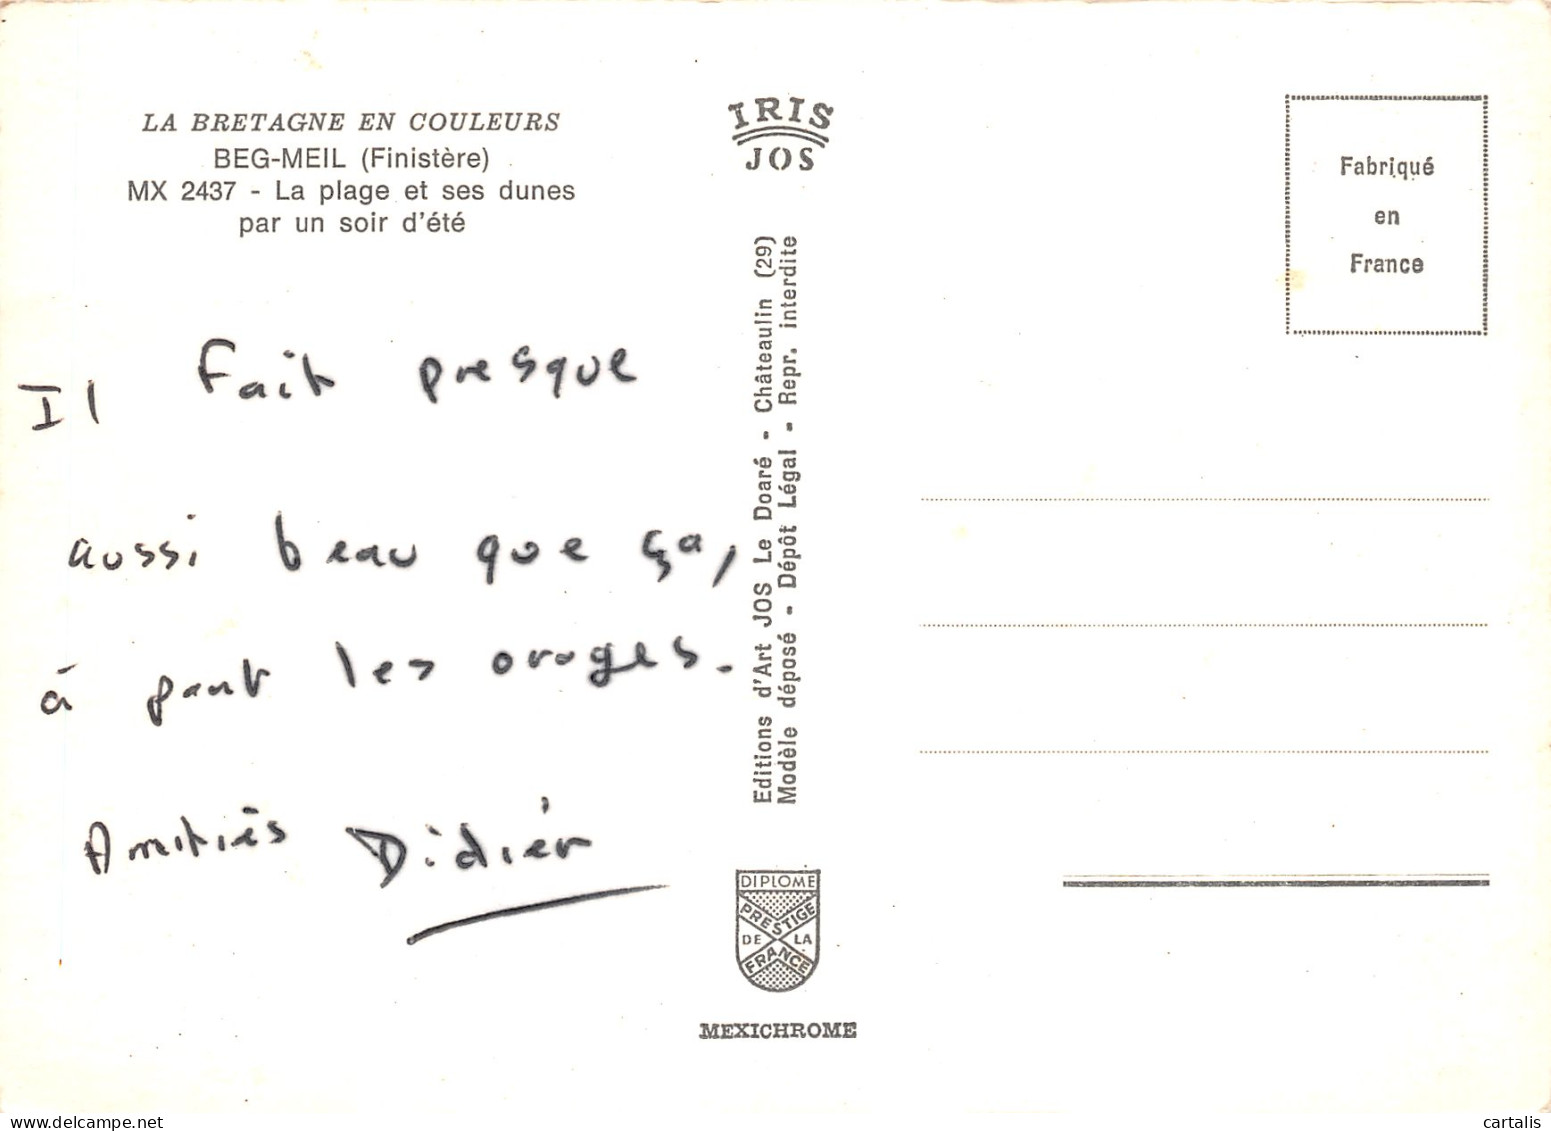 LA BRETAGNE EN COULEURS
BEG-MEIL (Finistère)
MX 2437 - La plage et ses dunes
par un soir d'été
Il fait presque
aussi beau que ça,
à part les orages.
Amitiés Didier
IRIS
JOS
Editions d'Art JOS Le Doaré - Châteaulin (29)
Modèle déposé - Dépôt Légal - Repr. interdite
DIPLOME
PRESTIGE
DE LA
FRANCE
MEXICHROME
Fabriqué
en
France
cartalis